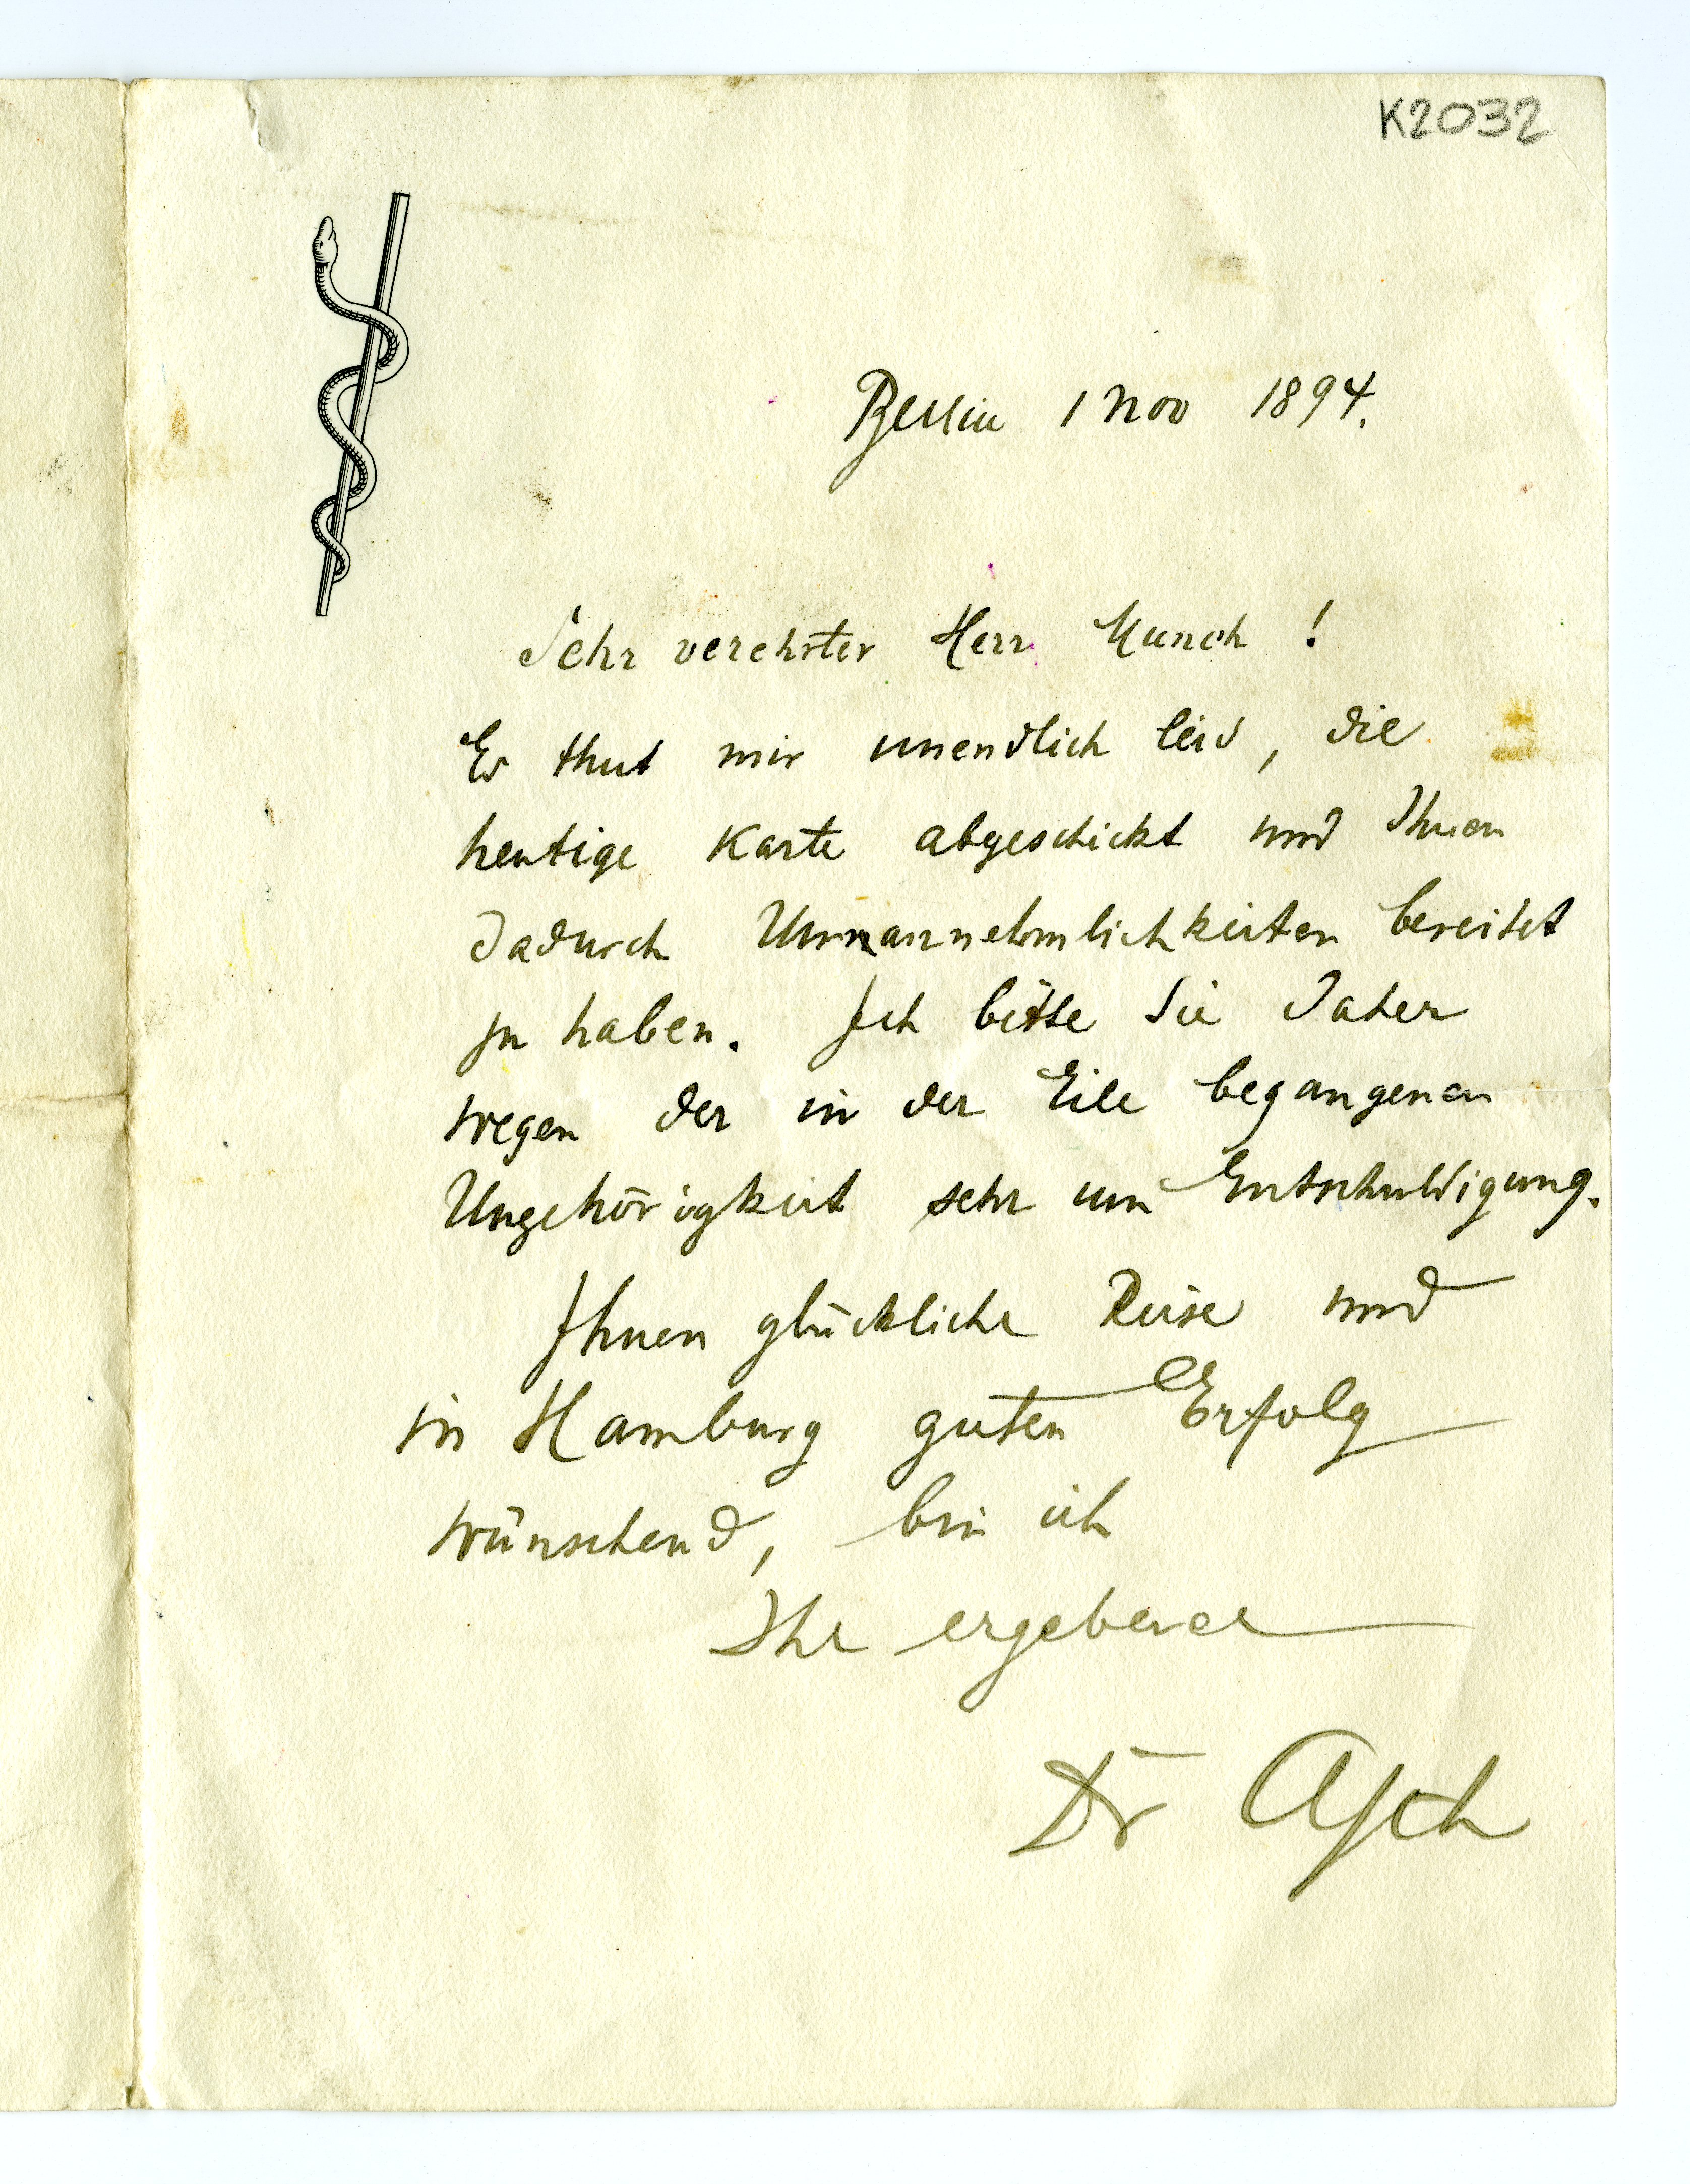 K2032
Berlin 1 Nov 1894.
Sehr verehrter Herr Munch !
Es thut mir unendlich leid, die
heutige Karte abgeschickt und Ihnen
dadurch Unnannehmlichkeiten bereitet
zu haben. Ich bitte Sie daher
wegen der in der Eile begangenen
Ungehörigkeit sehr um Entschuldigung.
Ihnen glückliche Reise und
in Hamburg guten Erfolg
wünschend, bin ich
Ihr ergebener
Dr Asch